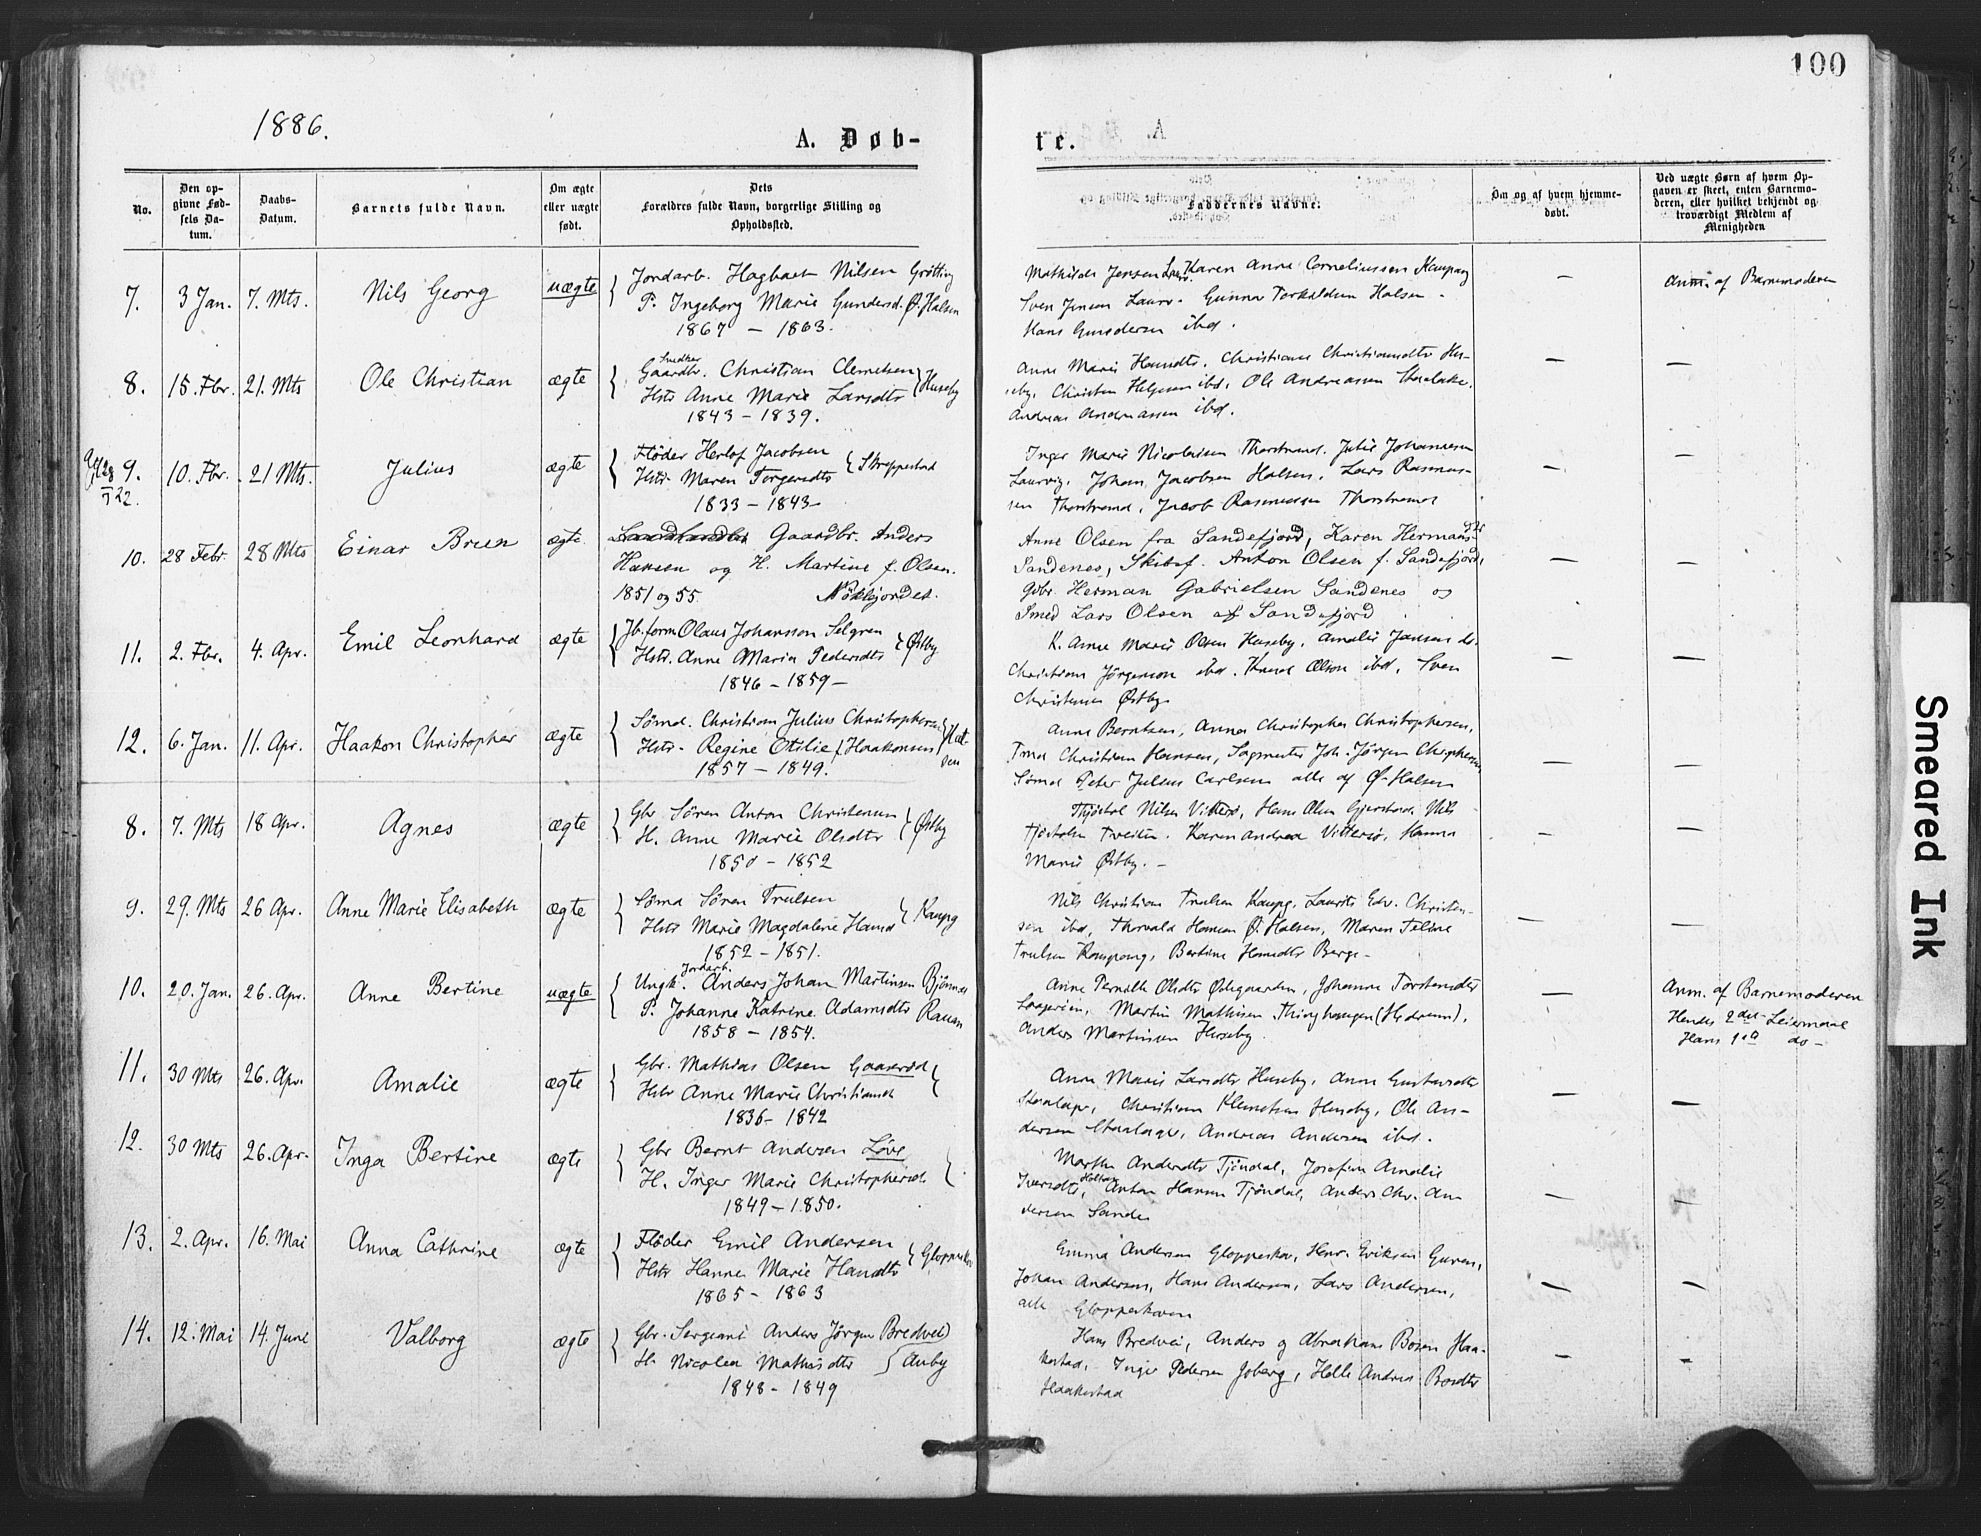 100
1886.
A. Døb-
te.
No.
Den op-
givne Fød-
sels Da-
tum.
Daabs-
Datum.
Barnets fulde Navn.
Om ægte
eller uægte
født.
Dets
Forældres fulde Navn, borgerlige Stilling og
Opholdssted.
Faddernes Navne.
Om og af hvem hjemme-
døbt.
Ved uægte Børn af hvem Op-
gaven er skeet, enten Barnemo-
deren, eller hvilket bekjendt og
troværdigt Medlem af
Menigheden
7. 3 Jan. 7. Mts. Nils Georg uægte
Jordarb. Hagbart Nilsen Grøtting
P. Ingeborg Marie Gundersd. Ø. Halsen
1867 - 1863.
Mathilde Jensen Laurv. Karen Anne Corneliussen Kaupang
Sven Jensen Laurv. Gunna Torkildsen Halsen.
Hans Gundersen ibd.
— Anm. af Barnemoderen
8. 15. Fbr. 21. Mts Ole Christian ægte
Snedker
Gaardbr. Christian Clemetsen
Hstr Anne Marie Larsdtr Huseby
1843 - 1839.
Anne Marie Hansdtr. Christiane Christiansdtr Hu-
seby, Christen Helgesen ibd, Ole Andreassen
Andreas Andreassen ibd.
— —
9. 10. Fbr. 21 Mts. Julius ægte
Fløder Herlof Jacobsen
Hstr. Maren Torgersdtr Skreppestad
1833 - 1843
Inger Marie Nicolaisen Thorstrand. Julie Johannesen
Laurvig. Johan Jacobsen Halsen, Lars Rasmus-
sen Thorstrand, Jacob Rasmussen Thorstrand
— —
10. 28 Febr. 28 Mts Einar Bruun ægte
Gaardbr. Anders
Hansen og H. Martine f. Olsen.
1851 og 55. Nökleg̈jordet.
Anne Olsen fra Sandefjord, Karen Hermansdtr
Sandenes, Skibsf. Anton Olsen f. Sandefjord,
Gdbr. Herman Gabrielsen Sandenes og
Smed Lars Olsen af Sandefjord
— —
11. 2. Fbr. 4. Apr. Emil Leonhard ægte
Jb.form Olaus Johansson Selgren
Hstr. Anne Maria Pedersdtr Østby
1846 - 1859 -
K. Anne Marie Olsen Huseby, Amalie Jansen do.
Christian Jørgensen ibd. Knud Olson ibd, Sven
Christensen Østby
— —
12. 6. Jan. 11. Apr. Haakon Christopher ægte
Sömd. Christian Julius Christophersen
Hstr. Regine Otilie f. Haakonsen
1857 - 1849.
Anne Berntsen, Anna Christopha Christophersen,
Tmd Christian Hansen, Sagmester Joh. Jørgen Chrphersen
Sömd Peter Julius Carlsen alle af Ø. Halsen
— —
8. 7. Mts 18 Apr. Agnes ægte
Gbr Sören Anton Christensen
H. Anne Marie Olsdtr Østby
1850 - 1852
Thjöstol Nilsen Vittersø, Hans Olsen Gjerstad. Nils
Tjöstolsen Tveiten. Karen Andrea Vittersø, Hanna
Marie Østby. -
— —
9. 29. Mts 26 Apr. Anne Marie Elisabeth ægte
Sömd Sören Trulsen
Hstr Marie Magdalene Hansd Kaupg
1852 - 1851.
Nils Christian Trulsen Kaupg, Laurits Edv. Christen-
sen ibd, Thorvald Hansen Ø. Halsen, Maren Teline
Trulsen Kaupang, Bertine Hansdtr Berge -
— —
10. 20. Jan. 26. Apr. Anne Bertine uægte
Jordarb.
Ungk. Anders Johan Martinsen Bjönnes
P. Johanne Katrine Adamsdtr Rauan
1858 - 1854.
Anne Pernille Olsdtr Ødegaarden, Johanne Torstensdtr
Martin Mathisen Thinghaugen (Hedrum),
Anders Martinsen Huseby.
— Anm. af Barnemoderen
Hendes 2det Leiermaal
Hans 1ste do -
11. 30 Mts 26. Apr. Amalie ægte
Gbr. Mathias Olsen Gaaserød
Hstr Anne Marie Christiansd
1836 - 1842
Anne Marie Larsdtr Huseby, Anne Gustavsdtr
Christian Klemetsen Huseby, Ole An-
dersen Andreas Andersen ibd.
— —
12. 30 Mts 26. Apr. Inga Bertine ægte
Gbr Bernt Andersen Löve
H. Inger Marie Christophersd.
1849 - 1850.
Marthe Andersdtr Tjöndal, Josefine Amalie
Iversdtr, Anton Hansen Tjöndal, Anders Chr. An
dersen Sande
— —
13. 2. Apr. 16. Mai Anna Cathrine ægte
Fløder Emil Andersen
Hstr Hanne Marie Hansdtr Gloppeskov
1865 - 1863
Emma Andersen Gloppeskov, Henr. Eriksen Guren,
Johan Andersen, Hans Andersen, Lars Andersen,
alle Gloppeskoven
— —
14. 12. Mai 14. June Valborg ægte
Gbr. Sergeant Anders Jörgen Bredvei
H. Nicolea Mathisdtr Auby
1848 - 1849
Hans Bredvei, Anders og Abraham Bosen Haa-
kestad, Inger Pedersen Joberg, Helle Andrea Bosdtr
Haakestad
— —
Smeared Ink